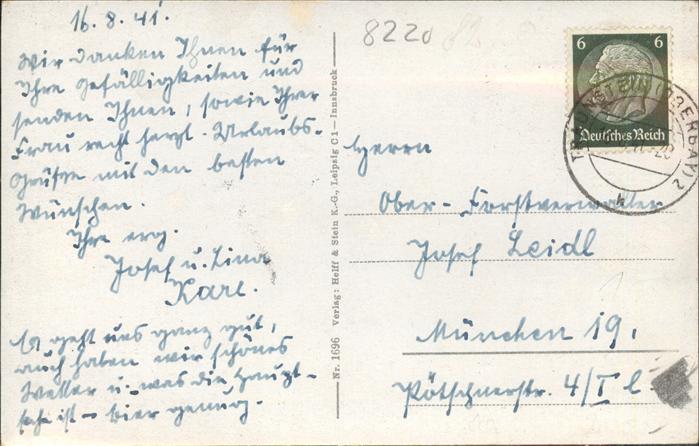 16.8.41.
Wir danken Ihnen für
Ihre Gefälligkeiten und
senden Ihnen, sowie Ihrer
Frau recht herzl. Urlaubs-
Grüße mit den besten
Wünschen.
Ihre erg.
Josef u. Lina
Karl.
Es geht uns ganz gut,
auch haben wir schönes
Wetter u. was die Haupt-
sache ist – Bier genug.
Nr. 1696 Verlag: Helff & Stein K.-G., Leipzig C1 — Innsbruck
8220
6 6
Deutsches Reich
TRAUNSTEIN (OBERBAY) 2
Herrn
Ober-Forstverwalter
Josef Leidl
München 19.
Pötschnerstr. 4/I l